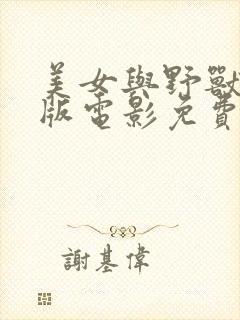 美女與野獸
版電影免費
謝基偉